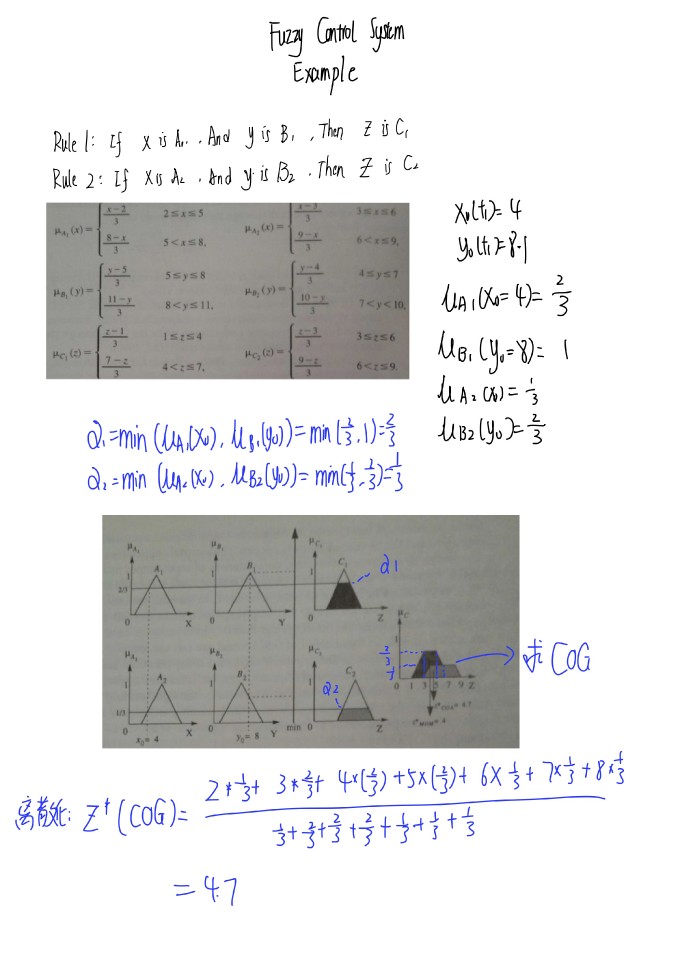 Fuzzy Control System
Example
Rule 1: If x is A₁. And y is B₁, Then Z is C₁
Rule 2: If X is A₂. And y is B₂. Then Z is C₂
μ_A₁(x) = { (x−2)/3  2≤x≤5
(8−x)/3  5<x≤8,
μ_A₂(x) = { (x−3)/3  3≤x≤6
(9−x)/3  6<x≤9,
μ_B₁(y) = { (y−5)/3  5≤y≤8
(11−y)/3  8<y≤11,
μ_B₂(y) = { (y−4)/3  4≤y≤7
(10−y)/3  7<y<10,
μ_C₁(z) = { (z−1)/3  1≤z≤4
(7−z)/3  4<z≤7,
μ_C₂(z) = { (z−3)/3  3≤z≤6
(9−z)/3  6<z≤9.
X₀(t₁)=4
y₀(t₁)=8.
μA₁(x₀=4)=2/3
μB₁(y₀=8)=1
μA₂(x₀)=1/3
μB2(y₀)=2/3
α₁=min(μA₁(x₀), μB₁(y₀))=min(2/3,1)=2/3
α₂=min(μA₂(x₀), μB2(y₀))=min(1/3,2/3)=1/3
μ_A₁
1
2/3
A₁
0
X
μ_B₁
1
B₁
0
Y
μ_C₁
1
C₁
0
Z
α1
μ_A₂
1
1/3
A₂
0
X
x₀= 4
μ_B₂
1
B₂
0
Y
y₀= 8
min
μ_C₂
1
C₂
α2
0
Z
μ_C
1
2/3
1/3
0 1 3 5 7 9 Z
z*COA = 4.7
z*MOM = 4
求COG
离散化: Z*(COG)= (2*1/3+3*2/3+4×(2/3)+5×(2/3)+6×1/3+7×1/3+8×1/3)/(1/3+2/3+2/3+2/3+1/3+1/3+1/3)
=4.7